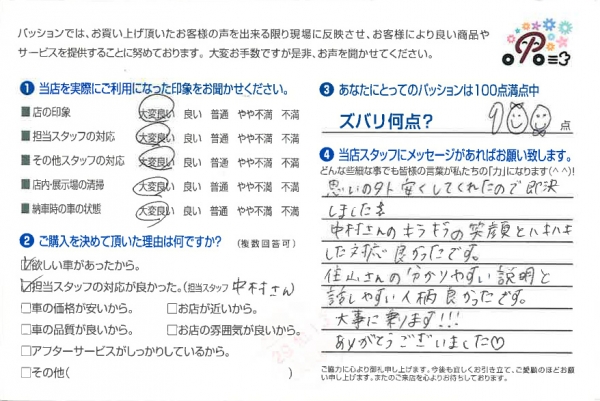 パッションでは、お買い上げ頂いたお客様の声を出来る限り現場に反映させ、お客様により良い商品や
サービスを提供することに努めております。 大変お手数ですが是非、お声を聞かせてください。
❶ 当店を実際にご利用になった印象をお聞かせください。
■ 店の印象 大変良い 良い 普通 やや不満 不満
■ 担当スタッフの対応 大変良い 良い 普通 やや不満 不満
■ その他スタッフの対応 大変良い 良い 普通 やや不満 不満
■ 店内・展示場の清掃 大変良い 良い 普通 やや不満 不満
■ 納車時の車の状態 大変良い 良い 普通 やや不満 不満
❷ ご購入を決めて頂いた理由は何ですか? (複数回答可)
☑欲しい車があったから。
☑担当スタッフの対応が良かった。(担当スタッフ 中村さん
□車の価格が安いから。 □お店が近いから。
□車の品質が良いから。 □お店の雰囲気が良いから。
□アフターサービスがしっかりしているから。
□その他( )
❸ あなたにとってのパッションは100点満点中
ズバリ何点? 900点
❹ 当店スタッフにメッセージがあればお願い致します。
どんな些細な事でも皆様の言葉が私たちの「力」になります(^^)!
思いのタト安くしてくれたので即決
しました
中村さんのキラキラの笑顔とハキハキ
した対応良かったです。
住山さんの分かりやすい説明と
話しやすい人柄良かったです。
大事に乗ります!!!
ありがとうございました♡
ご協力に心より御礼申し上げます。今後も宜しくお引き立て、ご愛顧のほどお願
い申し上げます。またのご来店を心よりお待ちしております。